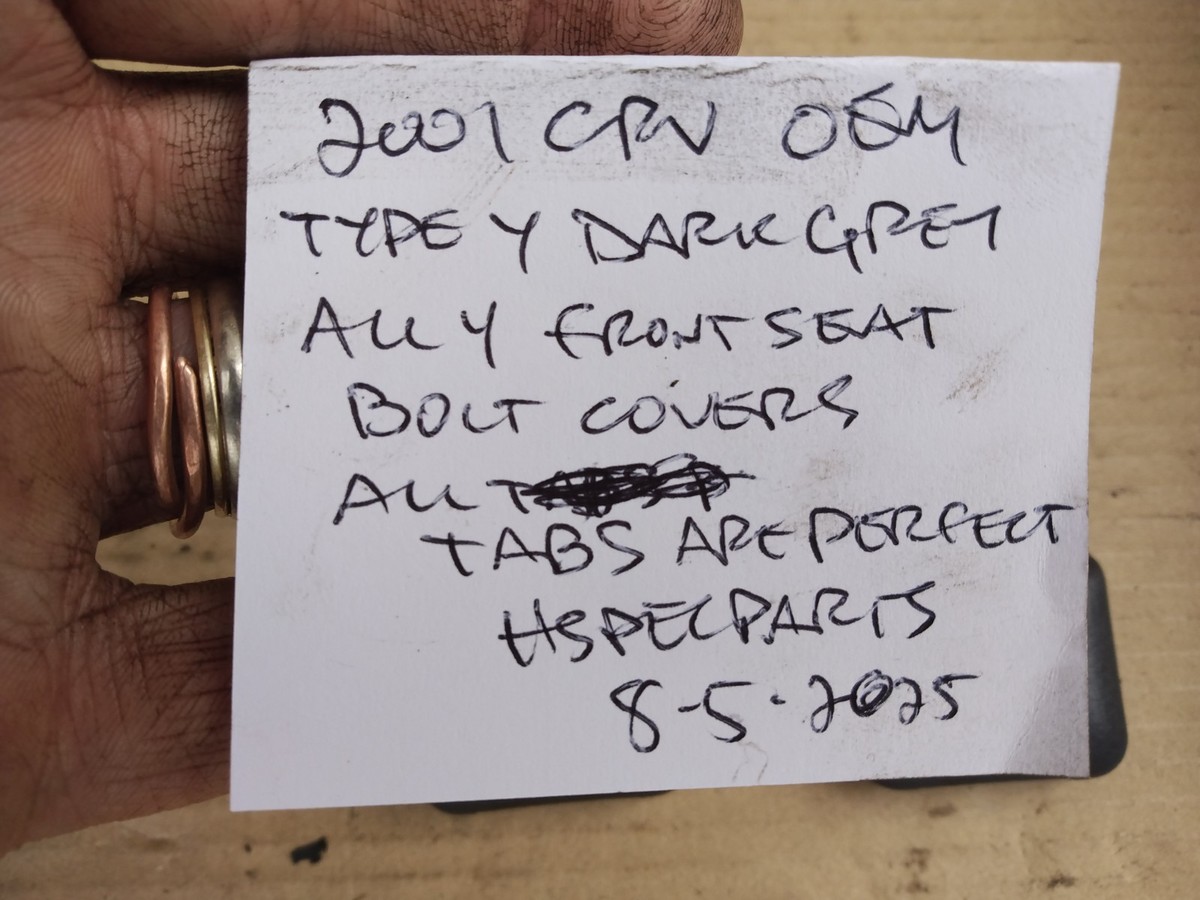 2001 CRV OEM
TYPE Y DARK GREY
ALL 4 FRONT SEAT
BOLT COVERS
ALL
TABS ARE PERFECT
HSPECPARTS
8-5-2025